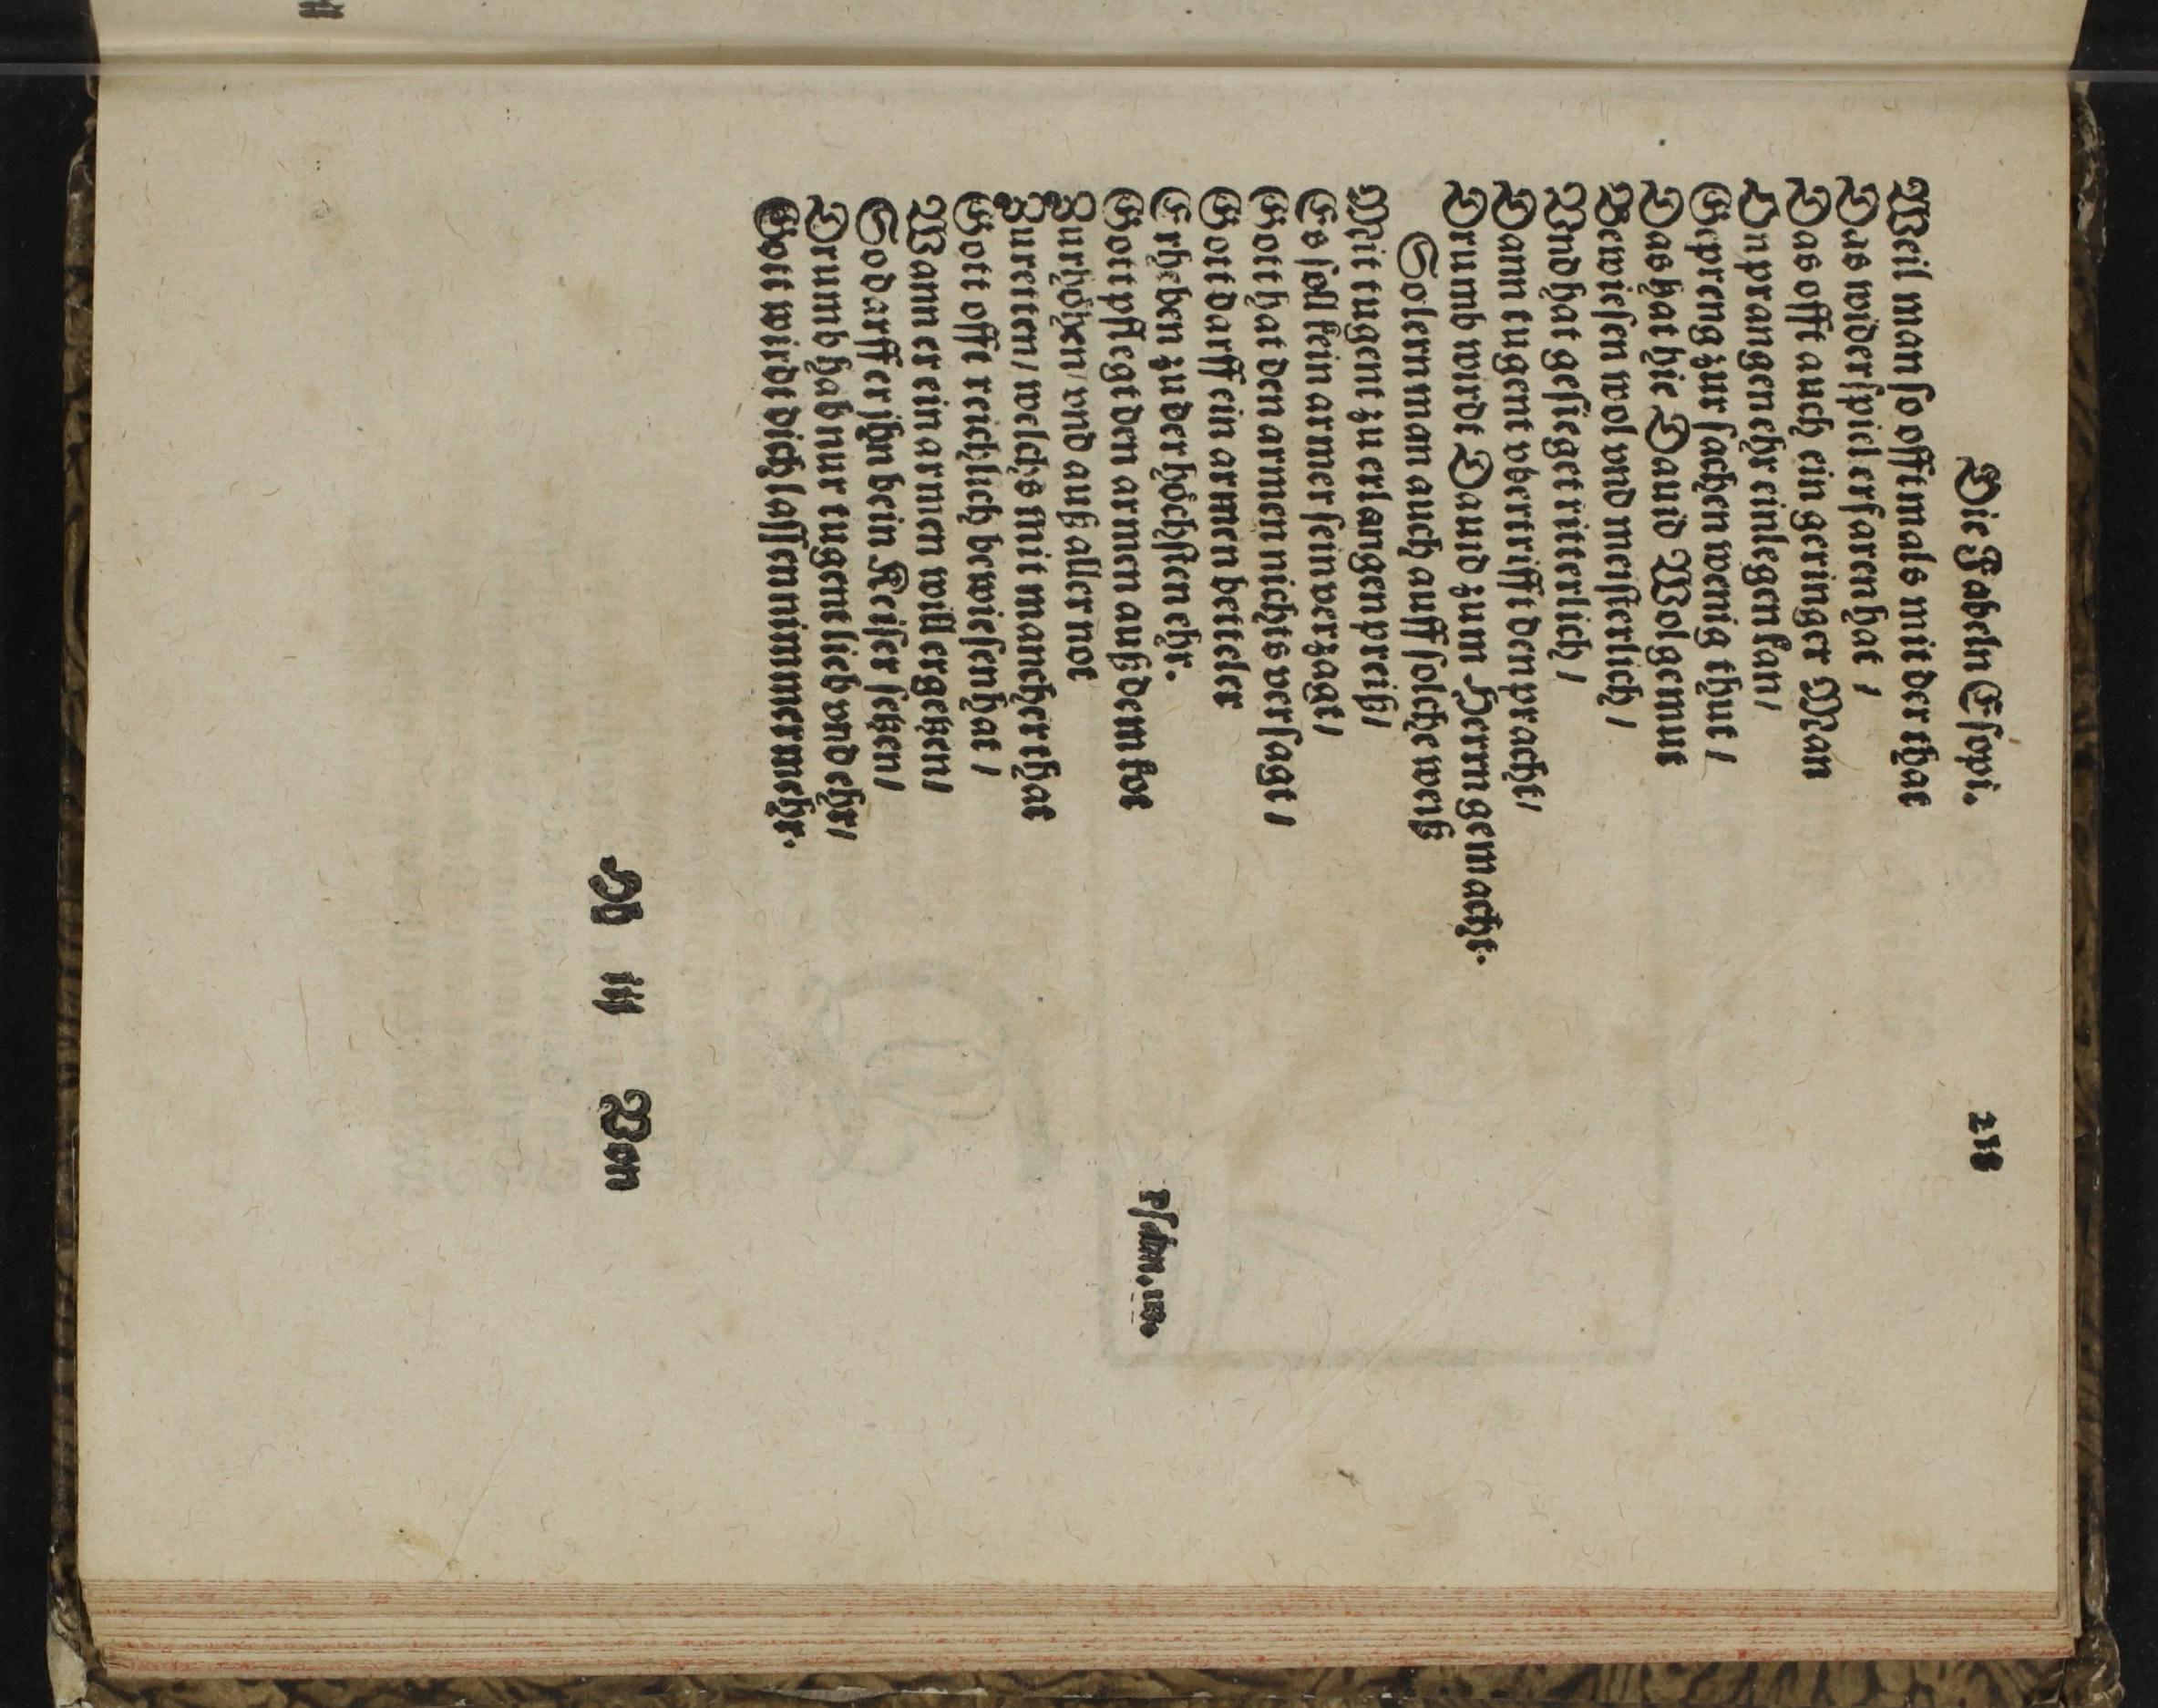 Die Fabeln Eſopi. 218
Weil man ſo offtmals mit der that
Das widerſpiel erfaren hat /
Das offt auch ein geringer Man
In prangen ehr einlegen kan /
Gepreng zur ſachen wenig thut /
Das hat hie Dauid Wolgemut
Bewieſen wol vnd meiſterlich /
Vnd hat geſieget ritterlich /
Dann tugent vbertrifft den pracht /
Drumb wirdt Dauid zum Herrn gemacht.
So lernn man auch auff ſolche weyß
Mit tugent zu erlangen preiß /
Es ſoll kein armer ſein verzagt /
Gott hat den armen nichts verſagt /
Gott darff ein armen betteler
Erheben zu der höchſten ehr.
Gott pflegt den armen auß dem kot
Pſalm.
Zurhöhen / vnd auß aller not
Zuretten / welchs mit mancher that
Gott offt reichlich bewieſen hat /
Wann er ein armen will ergetzen /
So darff er jhn bein Keiſer ſetzen /
Drumb hab nur tugent lieb vnd ehr /
Gott wirdt dich laſſen nimmermehr.
Hh iij Von